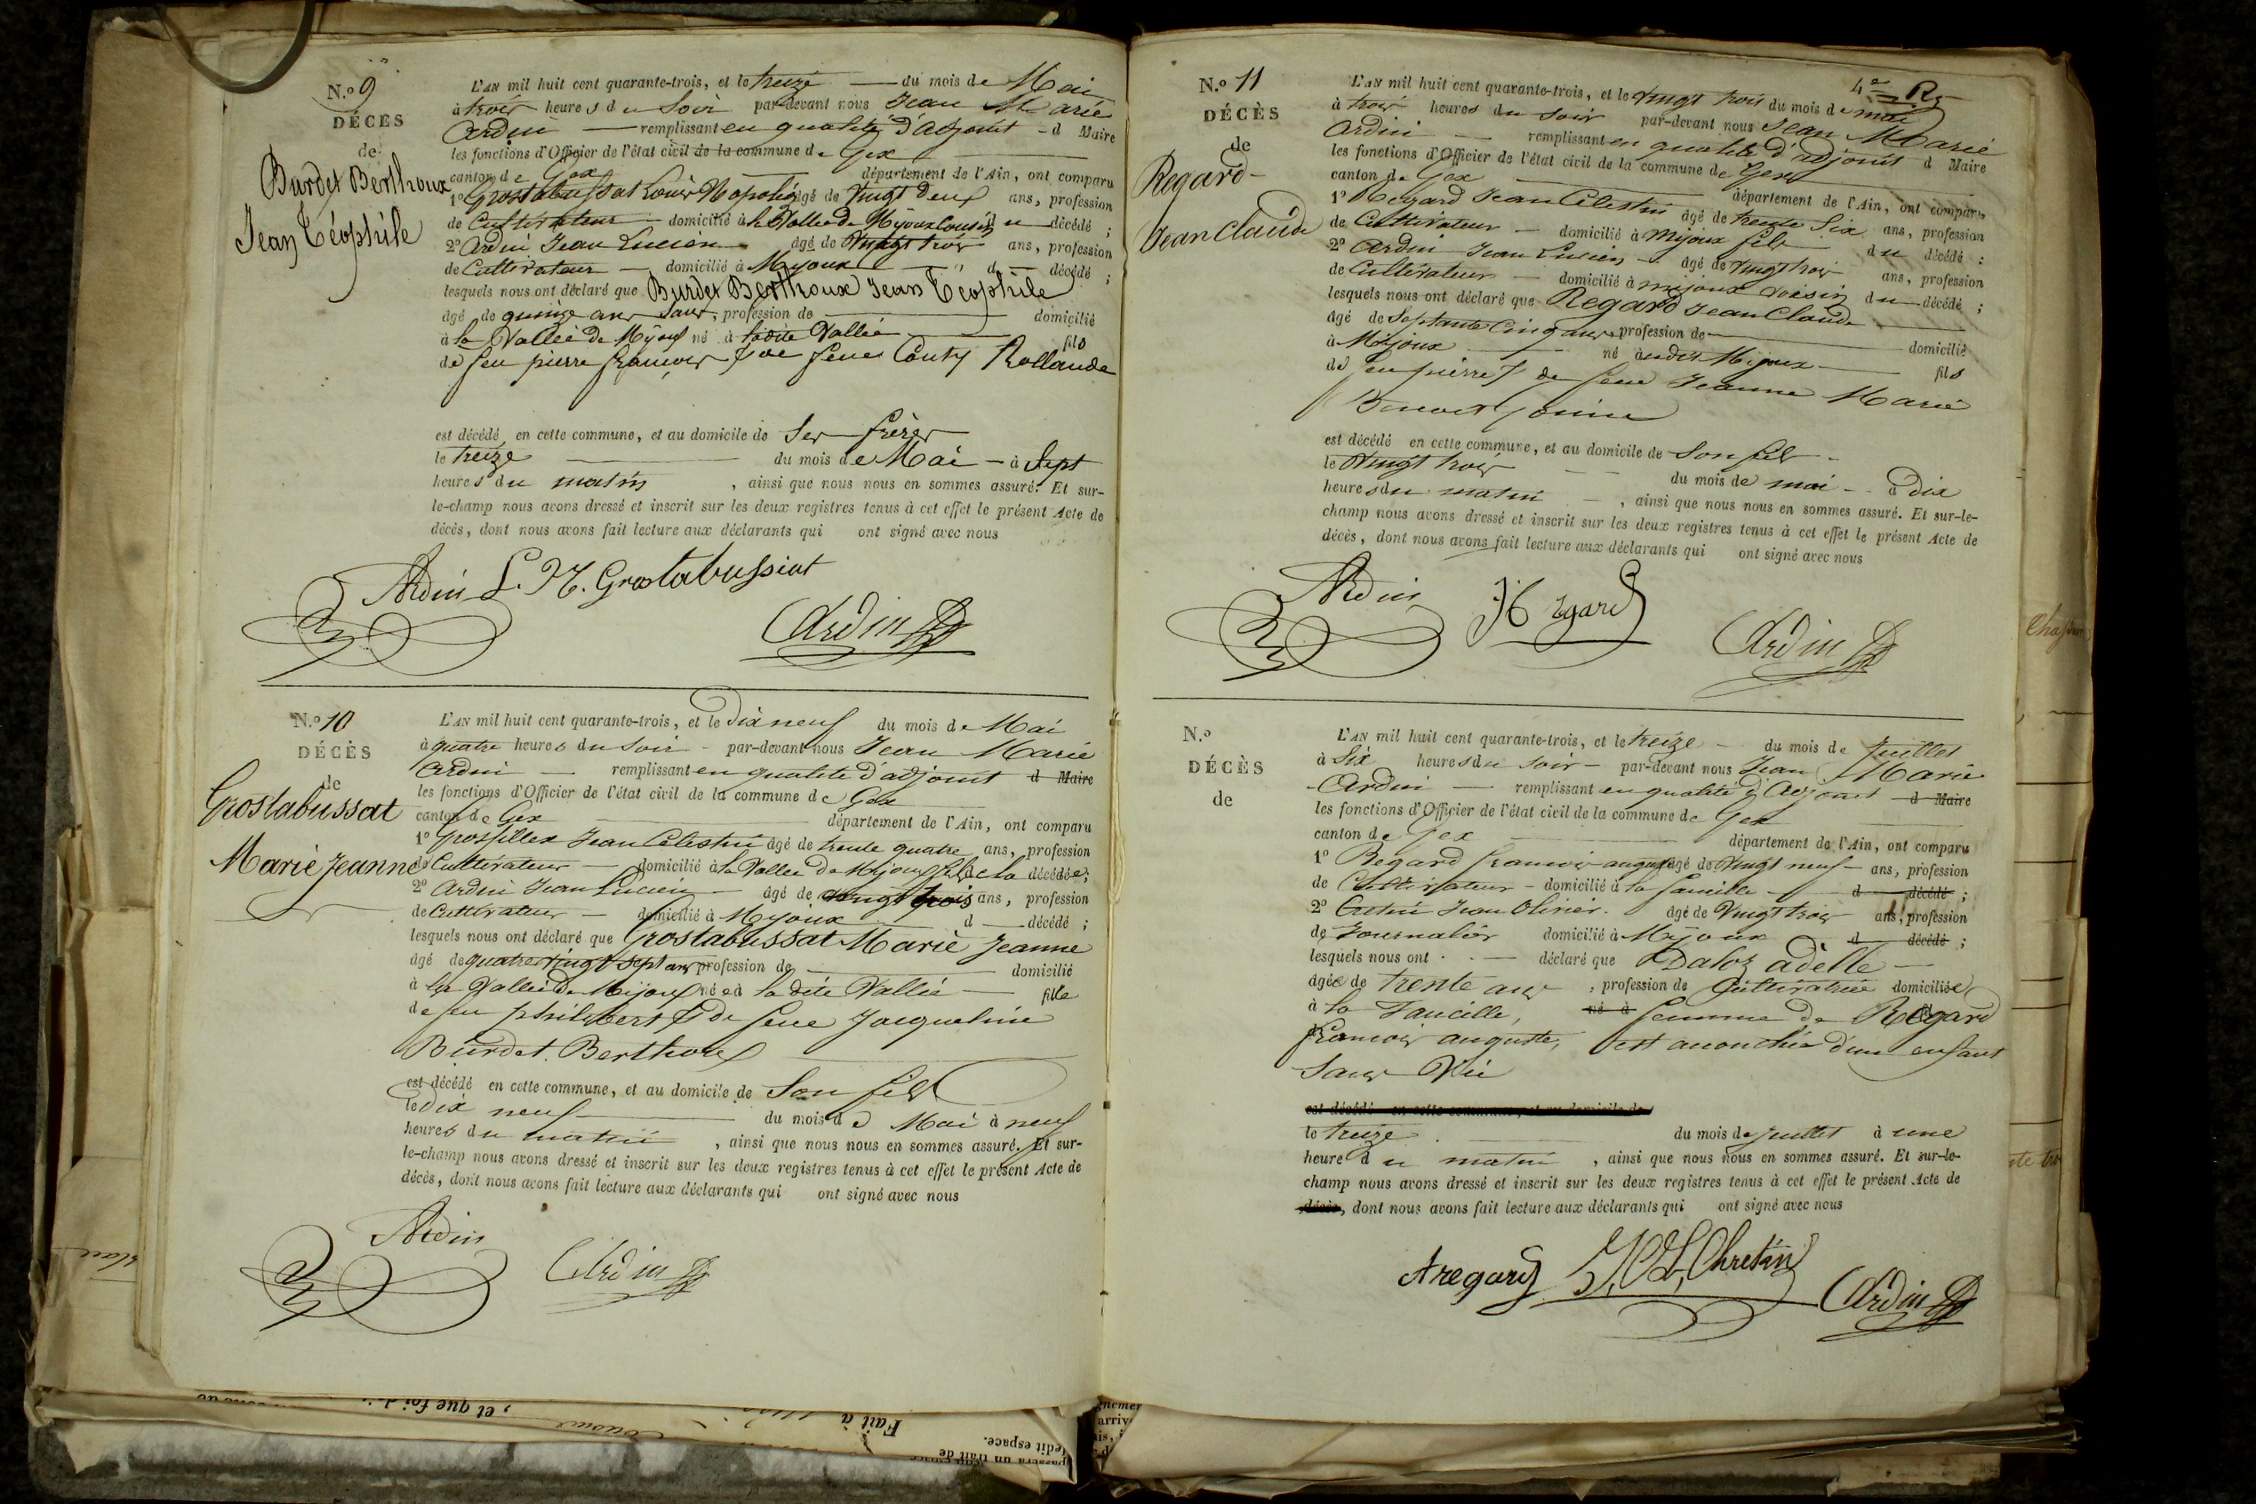 N.o 9
DÉCÈS
de
Burdet Berthoux
Jean Téophile
L'AN mil huit cent quarante-trois, et le treize du mois de Mai
à trois heures du Soir par-devant nous Jean Marie
Ardin remplissant en qualité d'adjoint d Maire
les fonctions d'Officier de l'état civil de la commune de Gex
canton de Gex département de l'Ain, ont comparu
1o Grostabussat Louis Napoléon âgé de Vingt Deux ans, profession
de Cultivateur domicilié à la Vallée de Mijoux Cousin du décédé ;
2o Ardin Jean Lucien âgé de Vingt trois ans, profession
de Cultivateur domicilié à Mijoux d décédé ;
lesquels nous ont déclaré que Burdet Berthoux Jean Téophile
âgé de quinze ans Sans profession de domicilié
à la Vallée de Mijoux né à la dite Vallée fils
de feu pierre françois & de feue Rollande
est décédé en cette commune, et au domicile de Ses frères
le treize du mois de Mai à Sept
heures du matin , ainsi que nous nous en sommes assuré. Et sur-
le-champ nous avons dressé et inscrit sur les deux registres tenus à cet effet le présent Acte de
décès, dont nous avons fait lecture aux déclarants qui ont signé avec nous
Ardin L. N. Grostabussiat
Ardin
N.o 10
DÉCÈS
de
Grostabussat
Marie Jeanne
L'AN mil huit cent quarante-trois, et le Dix neuf du mois de Mai
à quatre heures du Soir par-devant nous Jean Marie
Ardin remplissant en qualité d'adjoint d Maire
les fonctions d'Officier de l'état civil de la commune de Gex
canton de Gex département de l'Ain, ont comparu
1o Grosfillex Jean Célestin âgé de trente quatre ans, profession
de Cultivateur domicilié à la Vallée de Mijoux fils de la décédée ;
2o Ardin Jean Lucien âgé de vingt trois ans, profession
de Cultivateur domicilié à Mijoux d décédé ;
lesquels nous ont déclaré que Grostabussat Marie Jeanne
âgé de quatre vingt Sept ans profession de domicilié
à la Vallée de Mijoux née à la dite Vallée fille
de feu philibert & de feue Jacqueline
Burdet Berthoux
est décédé en cette commune, et au domicile de Son fils
le dix neuf du mois de Mai à neuf
heures du matin , ainsi que nous nous en sommes assuré. Et sur-
le-champ nous avons dressé et inscrit sur les deux registres tenus à cet effet le présent Acte de
décès, dont nous avons fait lecture aux déclarants qui ont signé avec nous
Ardin Ardin
N.o 11
DÉCÈS
de
Regard
Jean Claude
L'AN mil huit cent quarante-trois, et le Vingt trois du mois de mai
à trois heures du Soir par-devant nous Jean Marie
Ardin remplissant en qualité d'adjoint d Maire
les fonctions d'Officier de l'état civil de la commune de Gex
canton de Gex département de l'Ain, ont comparu
1o Regard Jean Célestin âgé de trente Six ans, profession
de Cultivateur domicilié à Mijoux fils du décédé ;
2o Ardin Jean Lucien âgé de Vingt trois ans, profession
de Cultivateur domicilié à Mijoux voisin du décédé ;
lesquels nous ont déclaré que Regard Jean Claude
âgé de Septante Cinq ans profession de domicilié
à Mijoux né audit Mijoux fils
de feu pierre & de feue Jeanne Marie
Benoit Gonin
est décédé en cette commune, et au domicile de Son fils
le Vingt trois du mois de mai à Dix
heures du matin , ainsi que nous nous en sommes assuré. Et sur-le-
champ nous avons dressé et inscrit sur les deux registres tenus à cet effet le présent Acte de
décès, dont nous avons fait lecture aux déclarants qui ont signé avec nous
Ardin Regard
Ardin
N.o
DÉCÈS
de
L'AN mil huit cent quarante-trois, et le treize du mois de Juillet
à Six heures du Soir par-devant nous Jean Marie
Ardin remplissant en qualité d'Adjoint d Maire
les fonctions d'Officier de l'état civil de la commune de Gex
canton de Gex département de l'Ain, ont comparu
1o Regard françois auguste âgé de Vingt neuf ans, profession
de Cultivateur domicilié à la faucille d décédé ;
2o Jean Olivier âgé de Vingt trois ans, profession
de Journalier domicilié à Mijoux d décédé ;
lesquels nous ont déclaré que Daloz adèlle
âgée de trente ans , profession de Cultivatrice domiciliée
à la Faucille, né à femme de Regard
françois auguste, est accouchée d'un enfant
Sans Vie
est décédé en cette commune, et au domicile de
le treize du mois de Juillet à une
heure du matin , ainsi que nous nous en sommes assuré. Et sur-le-
champ nous avons dressé et inscrit sur les deux registres tenus à cet effet le présent Acte de
décès, dont nous avons fait lecture aux déclarants qui ont signé avec nous
A regard Chretin Ardin